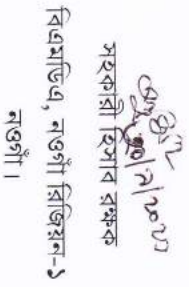 সহকারী হিসাব রক্ষক
বিএমডিএ, নওগাঁ রিজিয়ন-১
নওগাঁ।